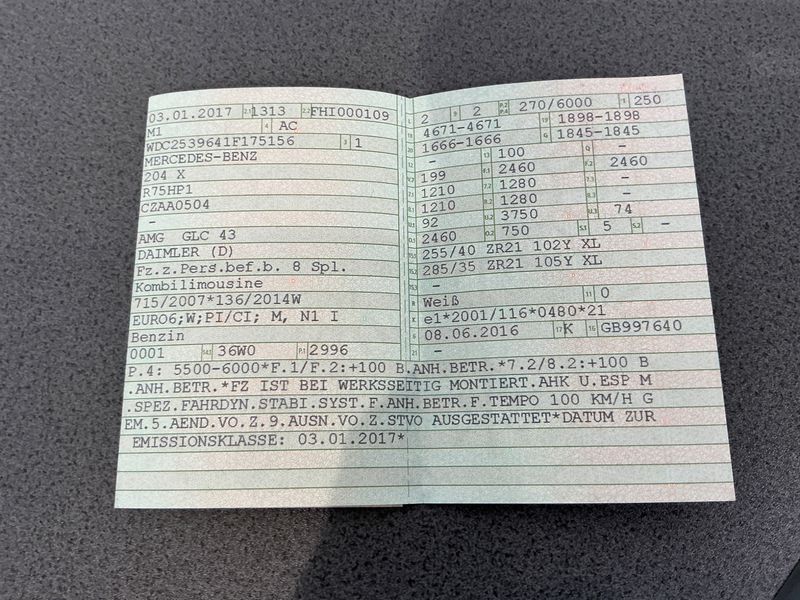 03.01.2017 2.1 1313 2.2 FHI000109
M1 4 AC
WDC2539641F175156 3 1
MERCEDES-BENZ
204 X
R75HP1
CZAA0504
-
AMG GLC 43
DAIMLER (D)
Fz.z.Pers.bef.b. 8 Spl.
Kombilimousine
715/2007*136/2014W
EURO6;W;PI/CI; M, N1 I
Benzin
0001 14.1 36W0 P.1 2996
L 2 9 2 P.2 P.4 270/6000 T 250
18 4671-4671 19 1898-1898
20 1666-1666 G 1845-1845
- 13 100 Q -
V.7 199 F.1 2460 F.2 2460
7.1 1210 7.2 1280 7.3 -
8.1 1210 8.2 1280 8.3 -
U.1 92 U.2 3750 U.3 74
O.1 2460 O.2 750 S.1 5 S.2 -
15.1 255/40 ZR21 102Y XL
15.2 285/35 ZR21 105Y XL
15.3 -
R Weiß 11 0
K e1*2001/116*0480*21
6 08.06.2016 17 K 16 GB997640
21 -
P.4: 5500-6000*F.1/F.2:+100 B.ANH.BETR.*7.2/8.2:+100 B
.ANH.BETR.*FZ IST BEI WERKSSEITIG MONTIERT.AHK U.ESP M
.SPEZ.FAHRDYN.STABI.SYST.F.ANH.BETR.F.TEMPO 100 KM/H G
EM.5.AEND.VO.Z.9.AUSN.VO.Z.STVO AUSGESTATTET*DATUM ZUR
EMISSIONSKLASSE: 03.01.2017*